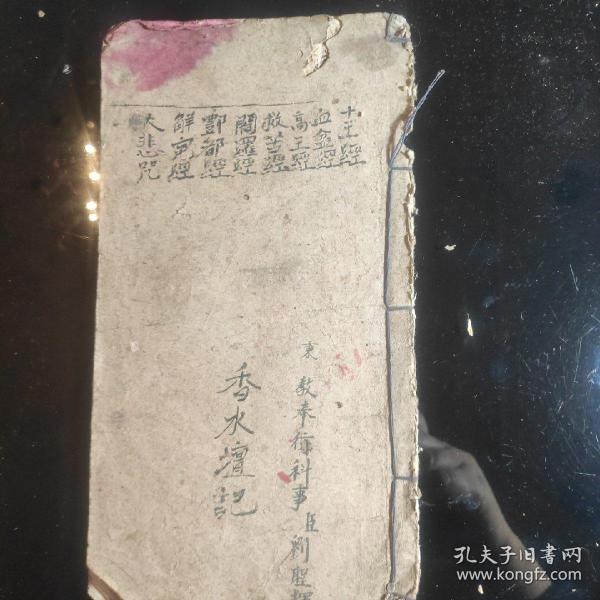 十王經
血盆經
高王經
救苦經
閻羅經
酆都經
解冤經
大悲咒
秉教奉行科事臣劉聖
香水壇記
孔夫子旧书网
www.kongfz.com